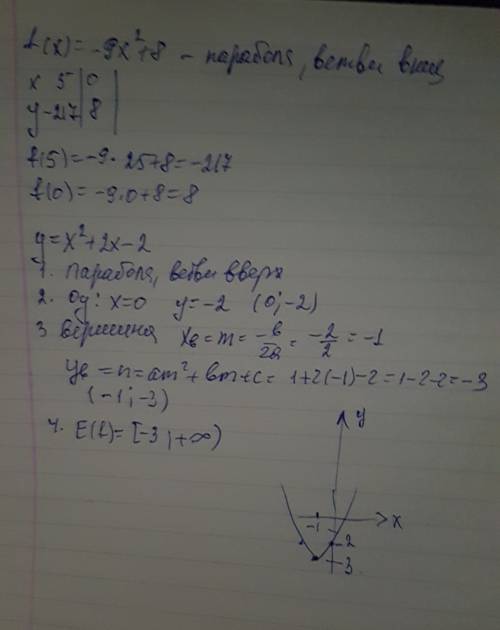 f(x) = -9x²+8 - парабола, ветви вниз
x 5 | 0 |
y -217 | 8 |
f(5) = -9·25+8 = -217
f(0) = -9·0+8 = 8
y = x²+2x-2
1. парабола, ветви вверх
2. Oy: x=0 y=-2 (0;-2)
3 вершина xв = m = -b/2a = -2/2 = -1
yв = n = am²+bm+c = 1+2(-1)-2 = 1-2-2 = -3
(-1;-3)
4. E(f) = [-3;+∞)
y
-1 x
-2
-3